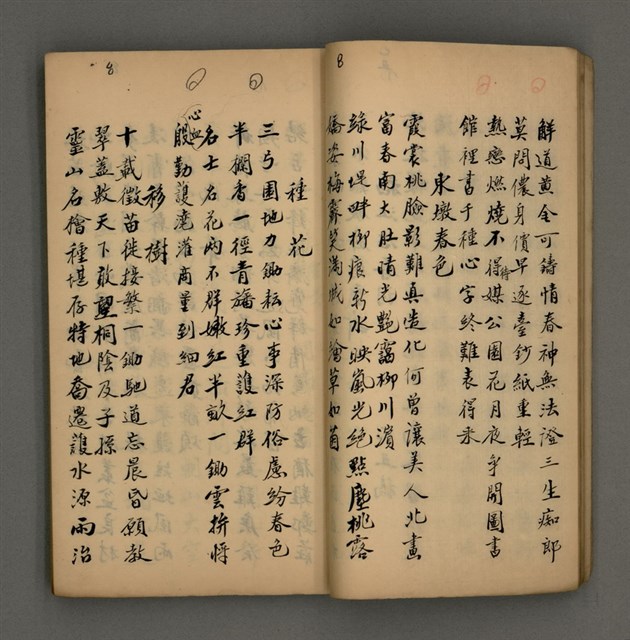 8
鮮道黄金可鑄情春神無法證三生痴郎
莫問儂身價早逐臺鈔紙重輕
熱戀燃燒不得待媒公園花月夜争開圖書
館裡書千種心字終難表得来
東墩春色
霞裳桃臉影難真造化何曾讓美人北畫
富春南大肚晴光艷靄柳川濱
綠川堤畔柳痕新水映嵐光絕點塵桃露
嬌姿梅霽笑滿城如繪草如茵
8
種花
三弓園地力鋤耘心事深防俗慮紛春色
半欄香一徑青旛珍重護紅群
名士名花兩不群嫩紅半畝一鋤雲拚將
心血
殷勤護澆灌商量到細君
移樹
十載徵苗徙接繁一鋤馳道忘晨昏願教
翠蓋敷天下敢望桐陰及子孫
靈山名檜種堪存特地喬遷護水源雨治